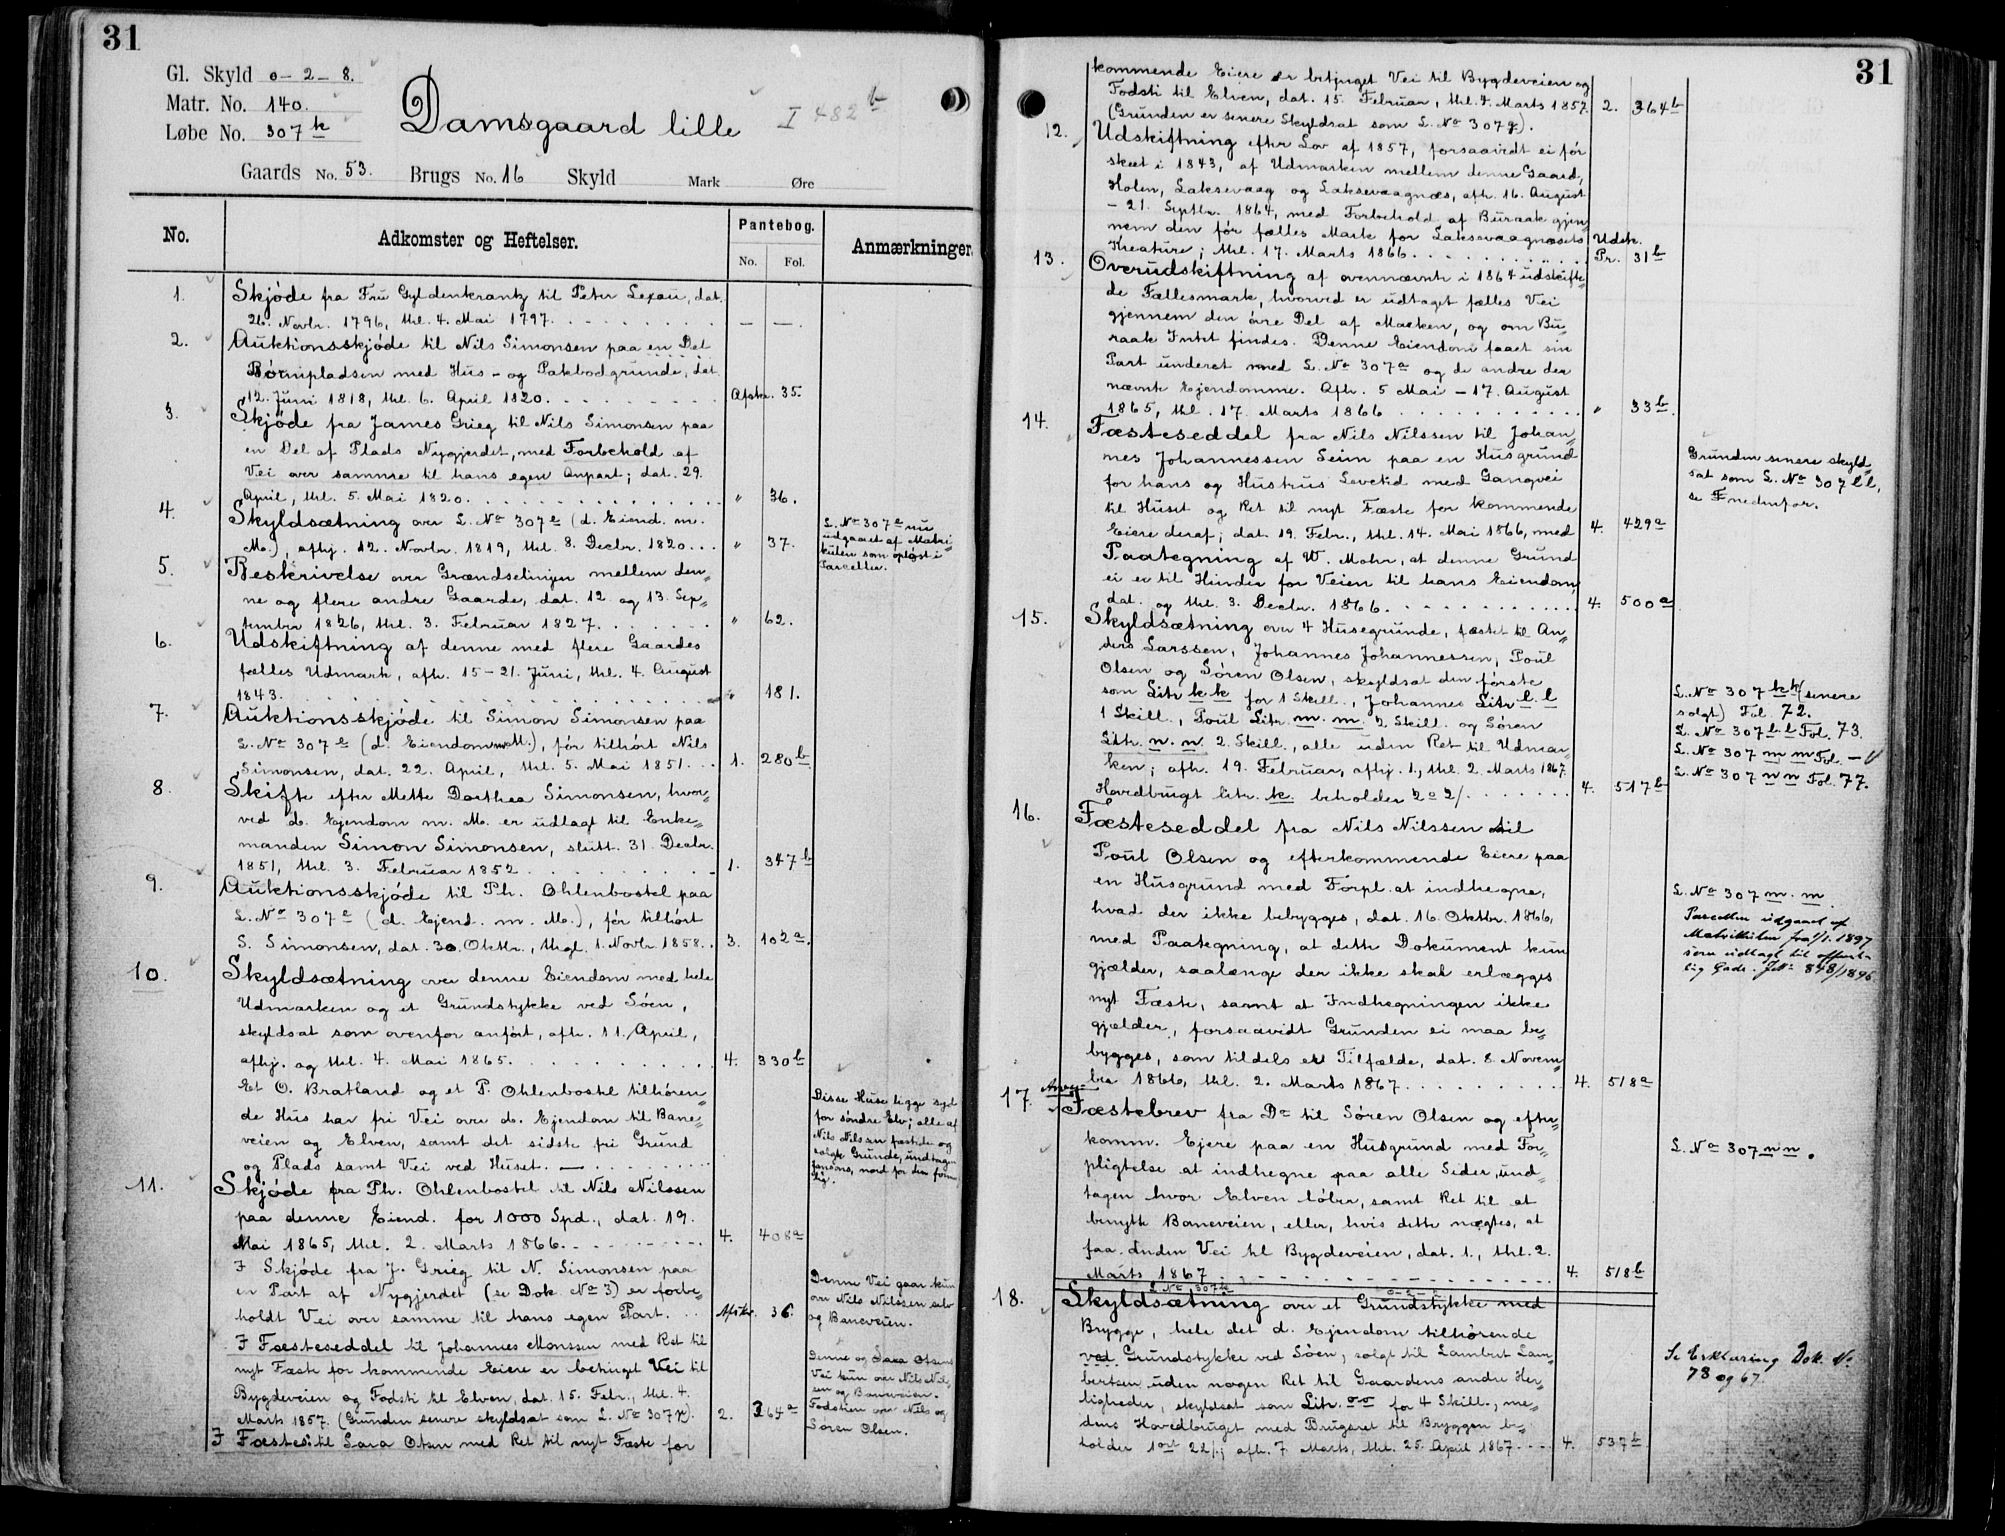 31
Gl. Skyld 0 - 2 - 8.
Matr. No. 140.
Løbe No. 307 k
Damsgaard lille I 482 b
Gaards No. 53. Brugs No. 16 Skyld Mark Øre
No. Adkomster og Heftelser. Pantebog. Anmærkninger.
No. Fol.
1. Skjøde fra Fru Gyldenkrantz til Peter Lexau, dat.
26. Novbr. 1796, thl. 4. Mai 1797. — —.
2. Auktionsskjøde til Nils Simonsen paa en Del
Börnipladsen med Hus- og Pakbodgrunde, dat.
12. Juni 1818, thl. 6. April 1820. Afskr. 35.
3. Skjøde fra James Grieg til Nils Simonsen paa
en Del af Plads Nygjerdet, med Forbehold af
Vei over samme til hans egen Anpart; dat. 29.
April, thl. 5. Mai 1820. " 36.
4. Skyldsætning over L. No 307 e (d. Eiend. m.
M.), afhj. 12. Novbr. 1819, thl. 8. Decbr. 1820. " 37.
L. No 307 e nu
udgaaet af Matri-
kulen som opløst i
Parceller.
5. Beskrivelse over Grændselinjen mellem den-
ne og flere andre Gaarde, dat. 12. og 13. Sep-
tember 1826, thl. 3. Februar 1827. " 62.
6. Udskiftning af denne med flere Gaardes
fælles Udmark, afh. 15 - 21. Juni, thl. 4. August
1843. " 181.
7. Auktionsskjøde til Simon Simonsen paa
L. No 307 e (d. Eiendom m. M.), før tilhørt Nils
Simonsen, dat. 22. April, thl. 5. Mai 1851. 1. 280 b
8. Skifte efter Mette Dorthea Simonsen, hvor-
ved d. Ejendom m. M. er udlagt til Enke-
manden Simon Simonsen, slutt. 31. Decbr.
1851, thl. 3. Februar 1852. 1. 347 b
9. Auktionsskjøde til Ph. Ohlenbostel paa
L. No 307 e (d. Ejend. m. M.), før tilhørt
S. Simonsen, dat. 30. Oktbr., thgl. 1. Novbr. 1858. 3. 102 a.
10. Skyldsætning over denne Eiendom med hele
Udmarken og et Grundstykke ved Søen,
skyldsat som ovenfor anført, afh. 11. April,
afhj. og thl. 4. Mai 1865. 4. 330 b
Et O. Bratland og et P. Ohlenbostel tilhören-
de Hus har fri Vei over d. Ejendom til Bane-
veien og Elven, samt det sidste fri Grund
og Plads samt Vei ved Huset. —
Disse Huse ligge syd
for søndre Elv; alle af
Nils Nilssen fæstede og
solgte Grunde, undtagen
11. Skjøde fra Ph. Ohlenbostel til Nils Nilssen
paa denne Eiend. for 1000 Spd., dat. 19.
Mai 1865, thl. 2. Marts 1866. 4. 408 a
I Skjøde fra J. Grieg til N. Simonsen paa
en Part af Nygjerdet (se Dok. No 3) er forbe-
holdt Vei over samme til hans egen Part. Afskr. 36.
Denne Vei gaar kun
over Nils Nilssen selv
og Baneveien.
I Fæsteseddel til Johannes Monssen med Ret til
nyt Fæste for kommende Eiere er betinget Vei til
Bygdeveien og Fodsti til Elven, dat. 15. Febr., thl. 4.
Marts 1857. (Grunden senere skyldsat som L. No 307 p). 2. 364 a
Denne og Sara Otsens
Vei kun over Nils Nils-
sen og Baneveien.
Fodstien over Nils og
Søren Olsen.
I Fæstes. til Sara Otsen med Ret til nyt Fæste for
31
kommende Eiere er betinget Vei til Bygdeveien og
Fodsti til Elven, dat. 15. Februar, thl. 4. Marts 1857. 2. 364 b
(Grunden er senere Skyldsat som L. No 307 q).
12. Udskiftning efter Lov af 1857, forsaavidt ei før
skeet i 1843, af Udmarken mellem denne Gaard,
Holen, Laksevaag og Laksevaagnæs, afh. 16. August
- 21. Septbr. 1864, med Forbehold af Buraak gjen-
nem den før fælles Mark for Laksevaagnæsets Udsk.
Kreature; thl. 17. Marts 1866. Pr. 31 b
13. Overudskiftning af ovennævnte i 1864 udskifte-
de Fællesmark, hvorved er udtaget fælles Vei
gjennem den øvre Del af Marken, og om Bu-
raak Intet findes. Denne Eiendom faaet sin
Part underet med L. No 307 a og de andre der
nævnte Ejendomme. Afh. 5 Mai - 17. August
1865, thl. 17. Marts 1866 " 33 b.
14. Fæsteseddel fra Nils Nilssen til Johan-
nes Johannessen Seim paa en Husgrund
for hans og Hustrus Levetid med Gangvei
til Huset og Ret til nyt Fæste for kommende
Eiere deraf; dat. 19. Febr., thl. 14. Mai 1866, med 4. 429 a
Grunden senere skyld-
sat som L. No 307 ll,
se Fnedenfor.
Paategning af W. Mohr, at denne Grund
ei er til Hinder for Veien til hans Eiendom,
dat. og thl. 3. Decbr. 1866. 4. 500 a
15. Skyldsætning over 4 Husegrunde, fæstet til An-
ders Larssen, Johannes Johannessen, Poul
Olsen og Søren Olsen, skyldsat den første
som Litr. k k for 1 Skill., Johannes Litr. l. l
1 Skill., Poul Litr. m. m. 2 Skill. og Søren
Litr. n. n. 2. Skill., alle uden Ret til Udmar-
ken; afh. 19. Februar, afhj. 1., thl. 2. Marts 1867.
Hovedbruget litr. k. beholder 2 o 2/. 4. 517 b
L. No 307 kk (senere
solgt) Fol. 72.
L. No 307 l. l Fol. 73.
L. No 307 m m Fol. — "
L. No 307 n n Fol. 77.
16. Fæsteseddel fra Nils Nilssen til
Poul Olsen og efterkommende Eiere paa
en Husgrund med Forpl. at indhegne,
hvad der ikke bebygges, dat. 16. Oktbr. 1866,
med Paategning, at dette Dokument kun
gjælder, saalænge der ikke skal erlægges
nyt Fæste, samt at Indhegningen ikke
gjælder, forsaavidt Grunden ei maa be-
bygges, som tildels er Tilfælde, dat. 8. Novem-
ber 1866, thl. 2. Marts 1867. 4. 518 a
L. No 307 m. m.
Parcellen udgaaet af
Matrikulen fra 1/1. 1897
som udlagt til offent-
lig Gade. 848/1896
17. Fæstebrev fra Do til Søren Olsen og efter-
komm. Ejere paa en Husgrund med For-
pligtelse at indhegne paa alle Sider, und-
tagen hvor Elven løber, samt Ret til at
benytte Baneveien, eller, hvis dette nægtes, at
faa anden Vei til Bygdeveien, dat. 1., thl. 2.
Marts 1867 4. 518 b
L. No 307 n n.
18. Skyldsætning over et Grundstykke med
Brygge, hele det d. Ejendom tilhørende
ved Grundstykke ved Søen, solgt til Lambert Lam-
bertsen uden nogen Ret til Gaardens andre Her-
ligheder, skyldsat som Litr. oo for 4 Skill., me-
dens Hovedbruget med Brugsret til Bryggen be-
holder 1 ort 22/; afh. 7. Marts, thl. 25. April 1867. 4. 537 b
Se Erklæring Dok. No
78 og 67.